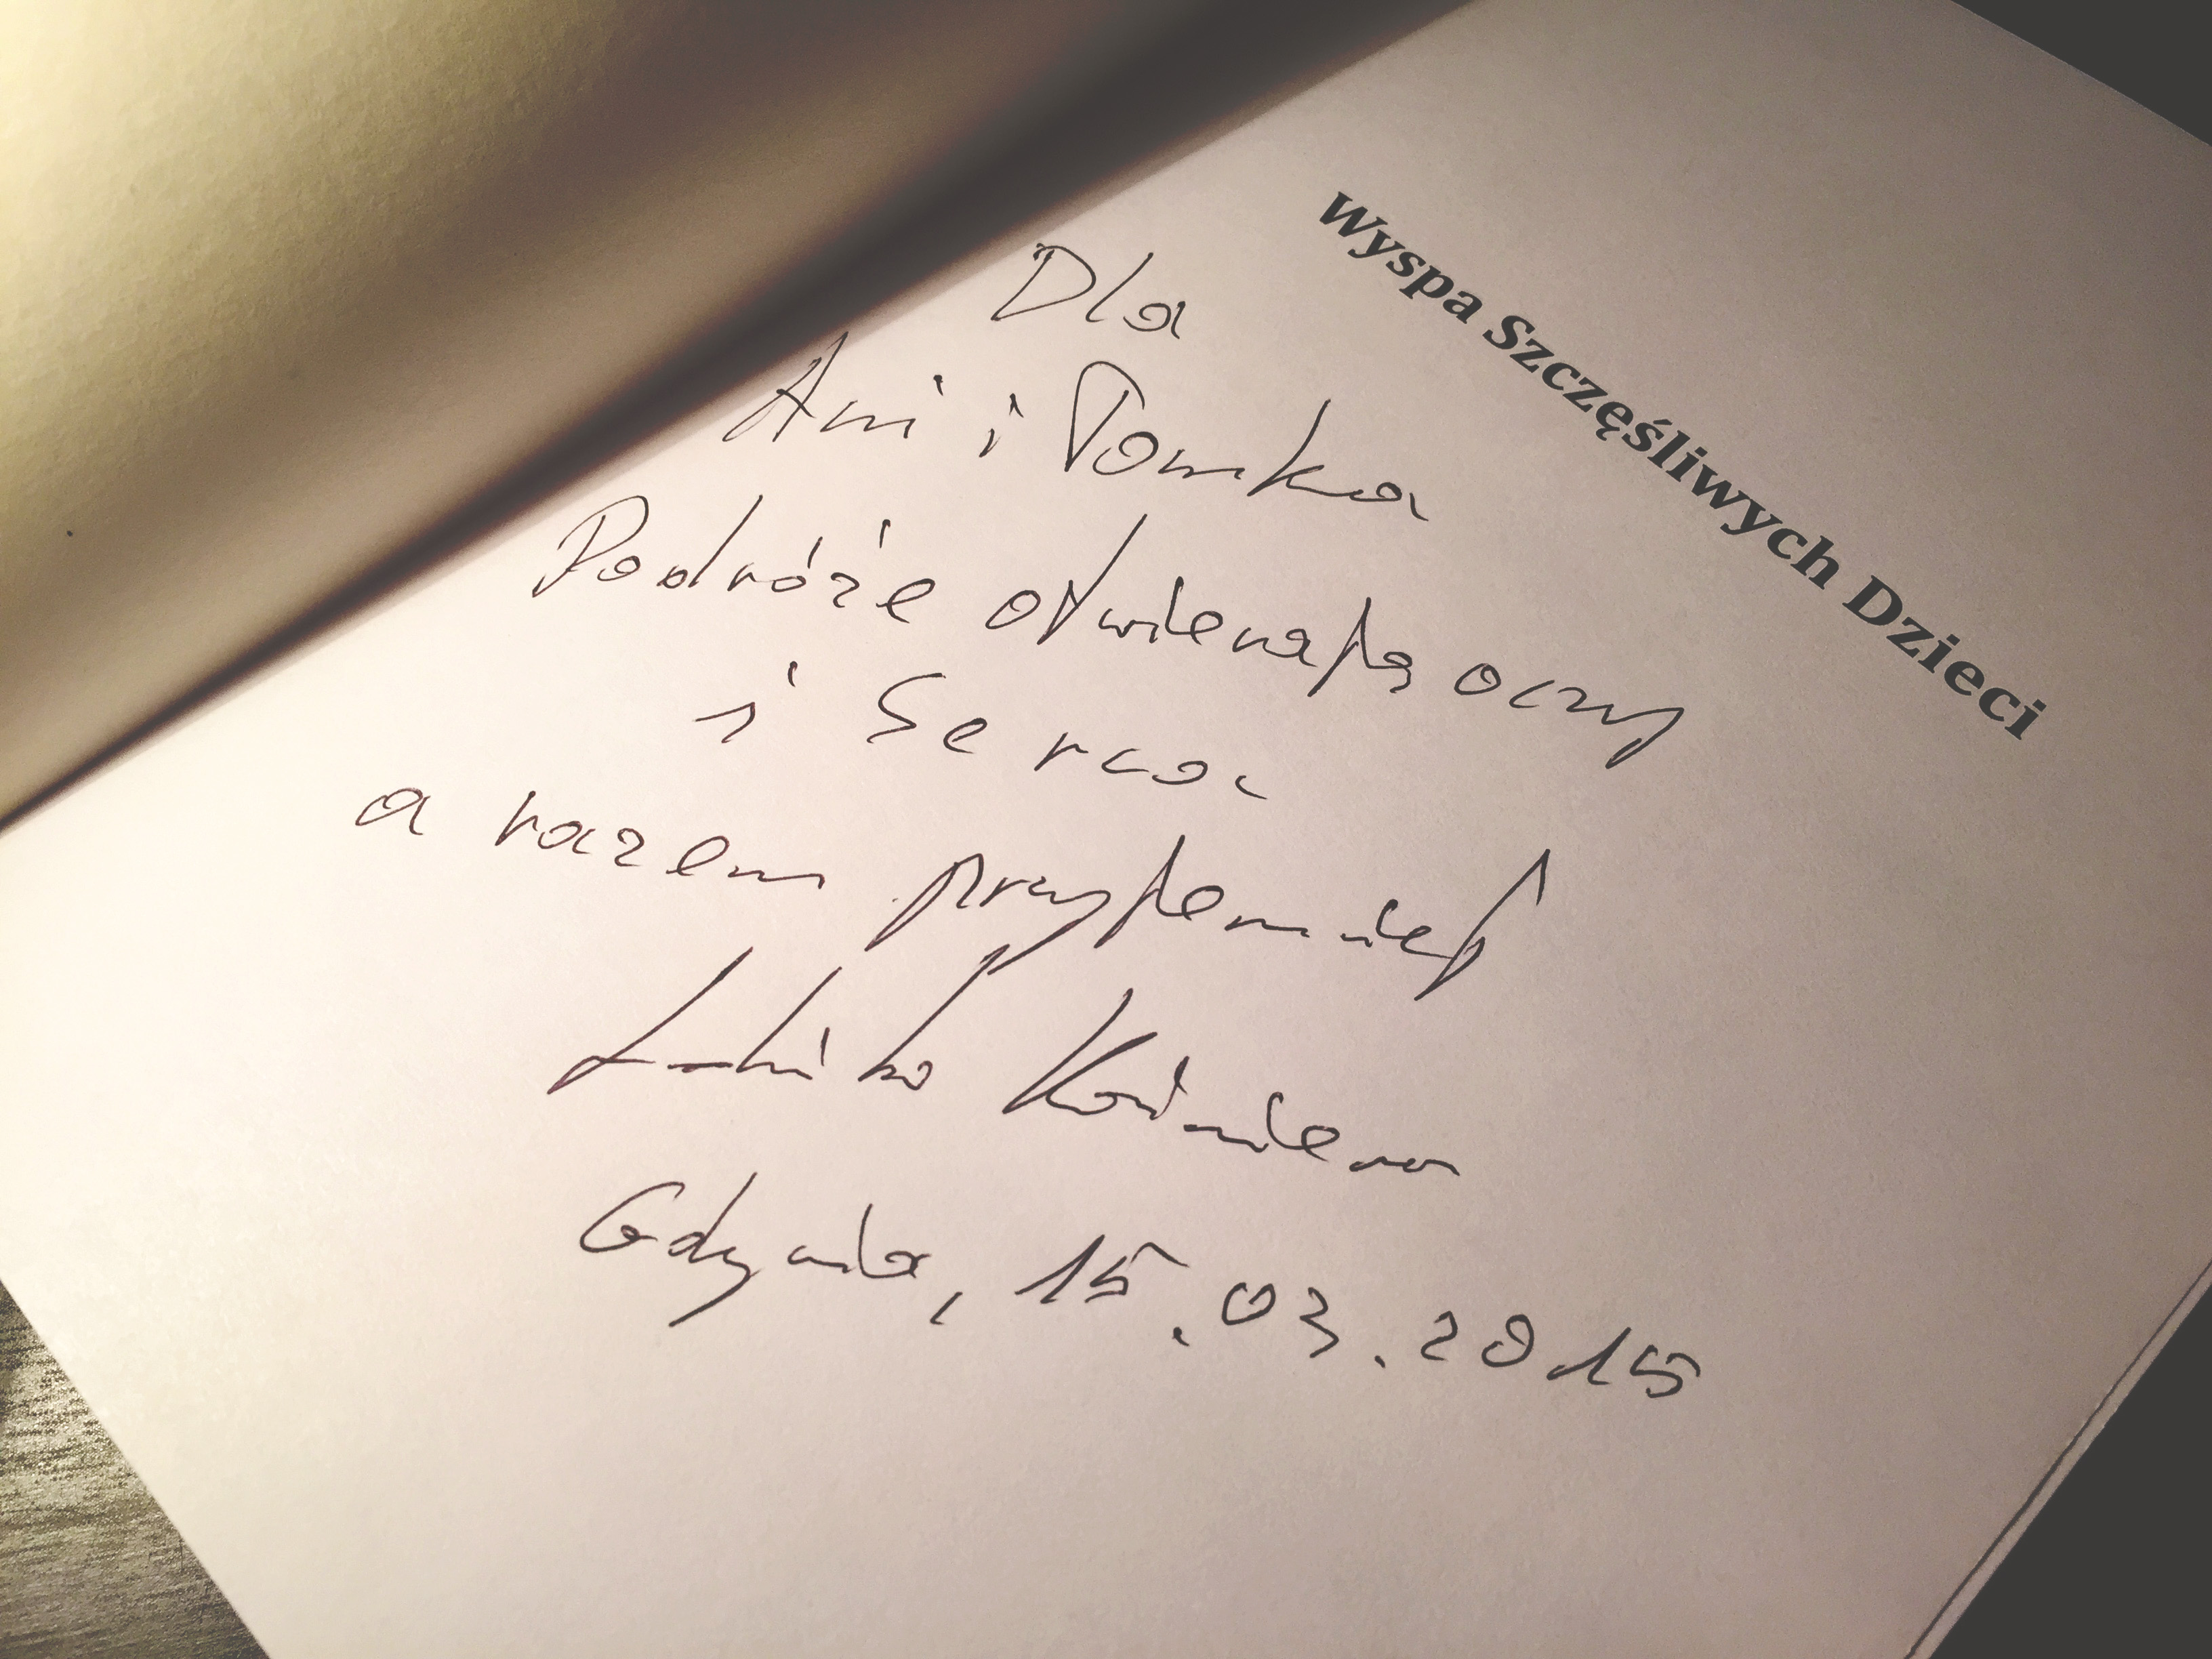 Wyspa Szczęśliwych Dzieci
Dla
Ani i Tomka
Podróże otwierają oczy
i serca
a razem przyjemniej
Gdynia, 15.03.2015